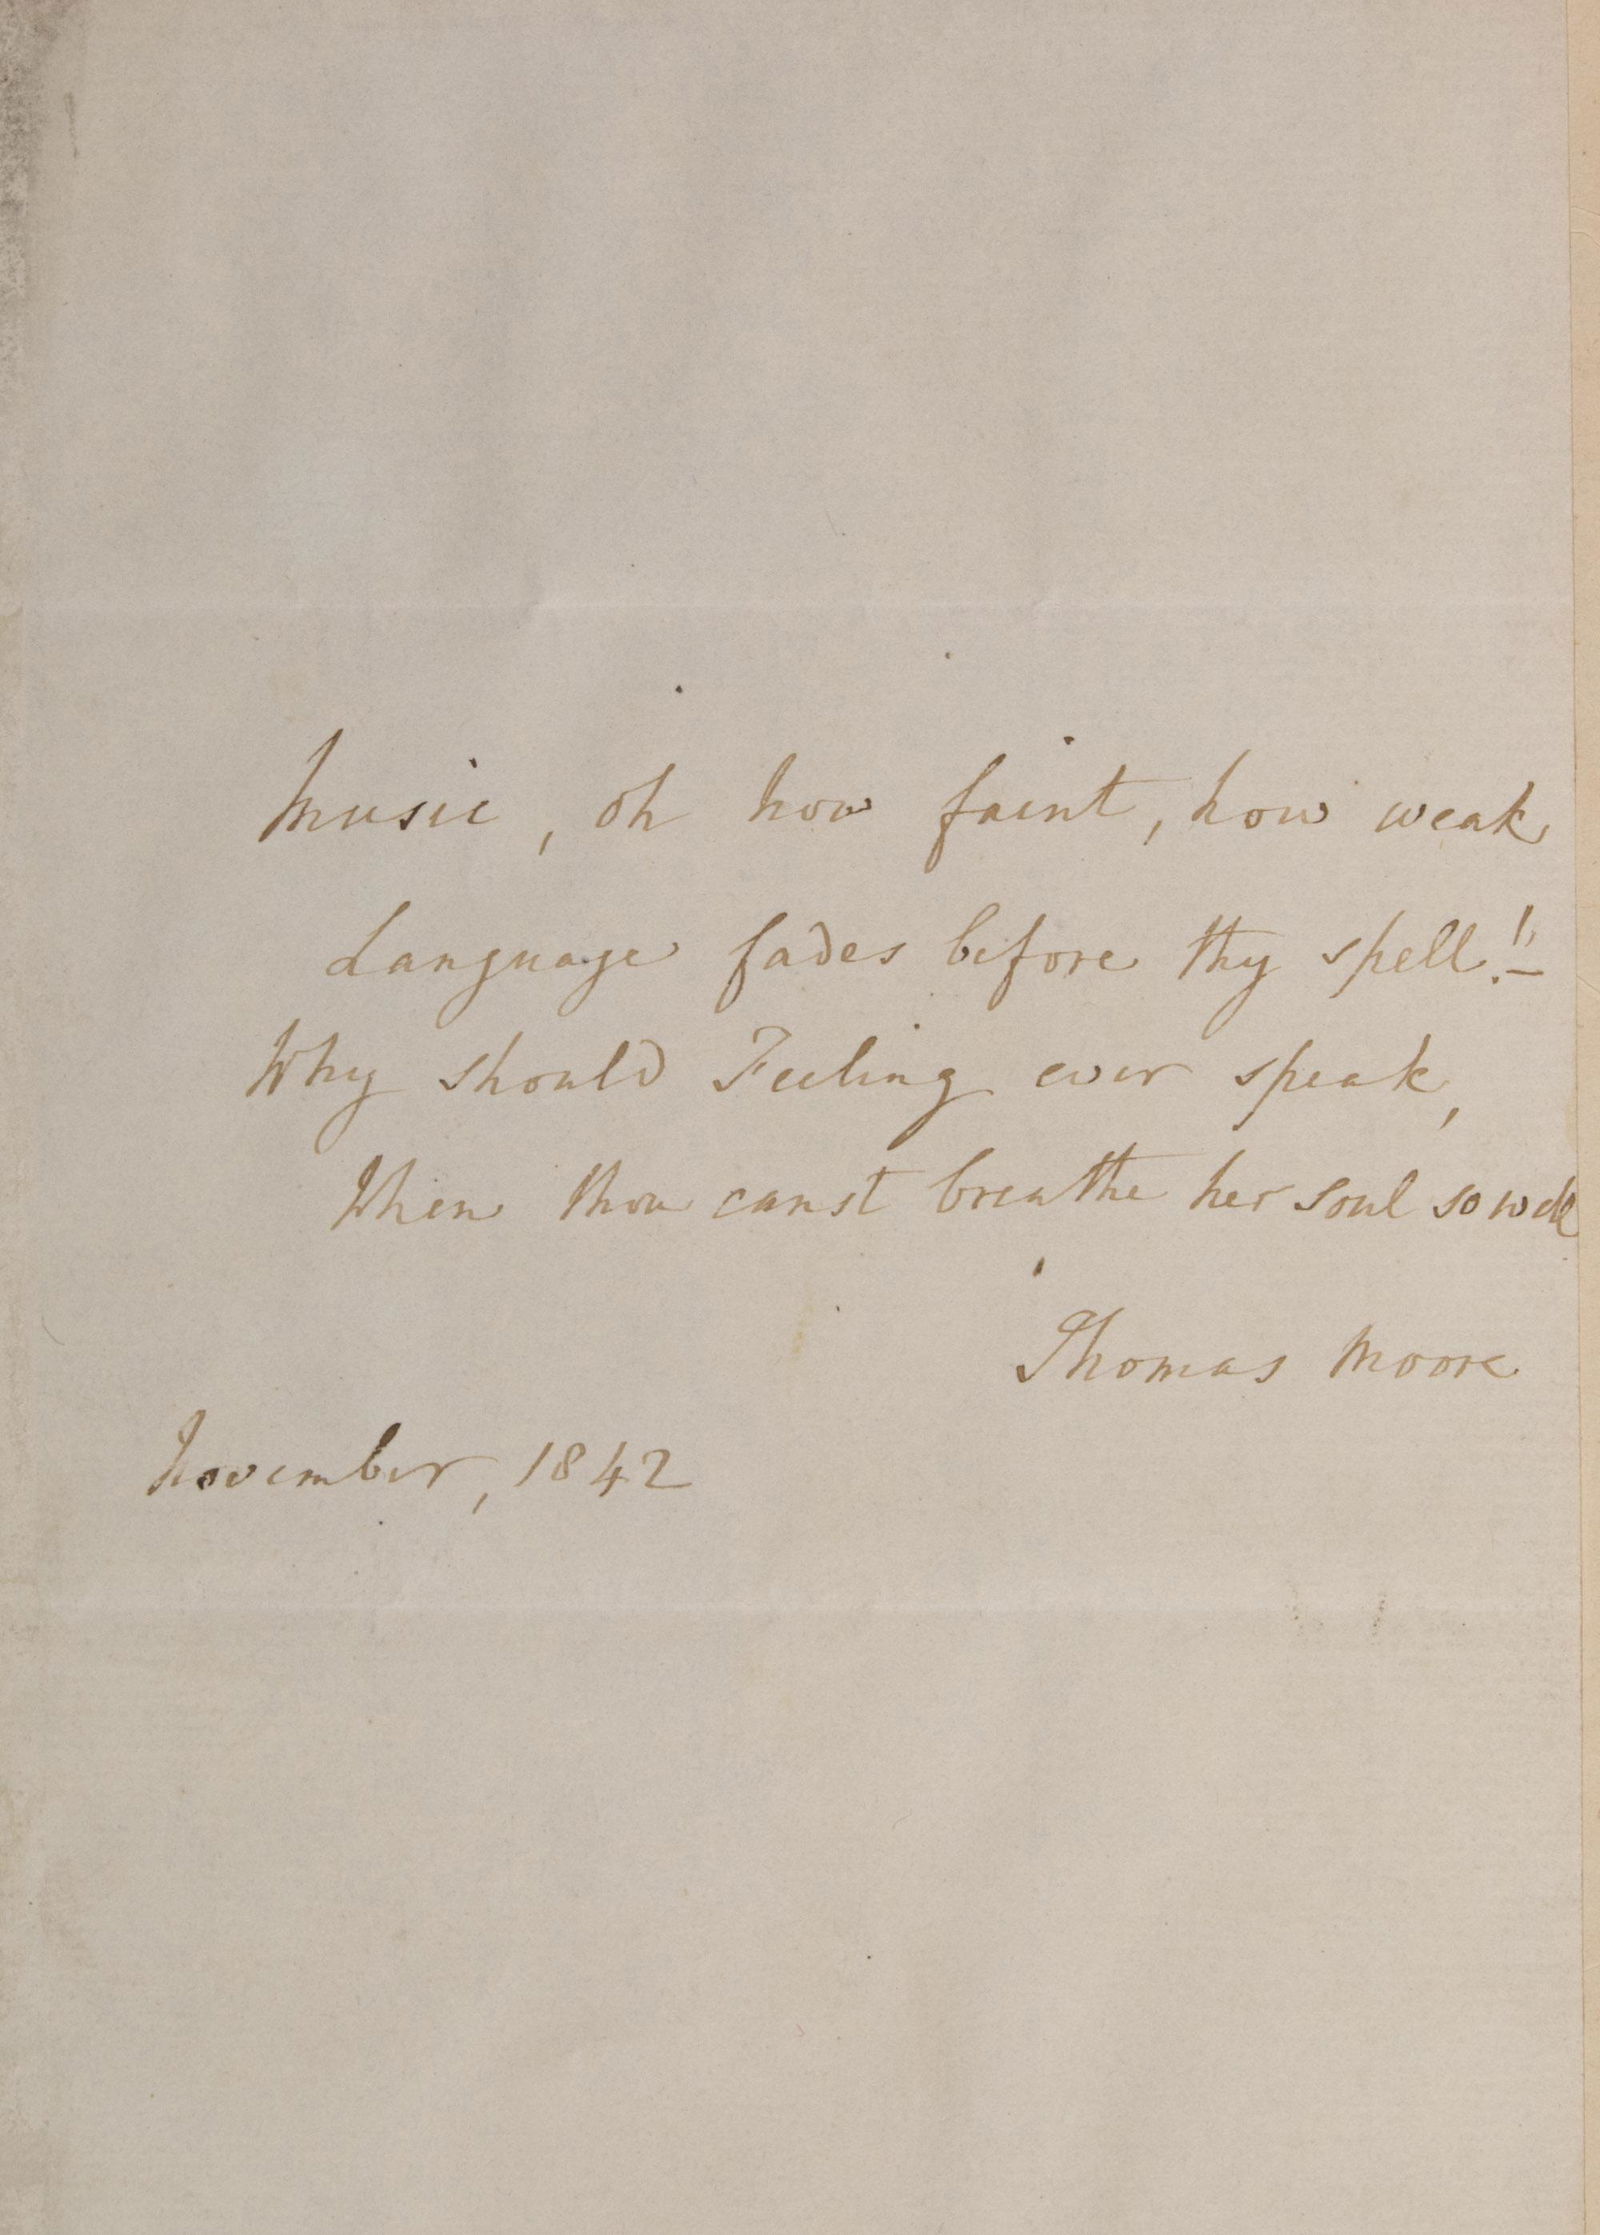 Music, oh how faint, how weak
Language fades before thy spell!—
Why should Feeling ever speak,
When thou canst breathe her soul so well
Thomas Moore
November, 1842